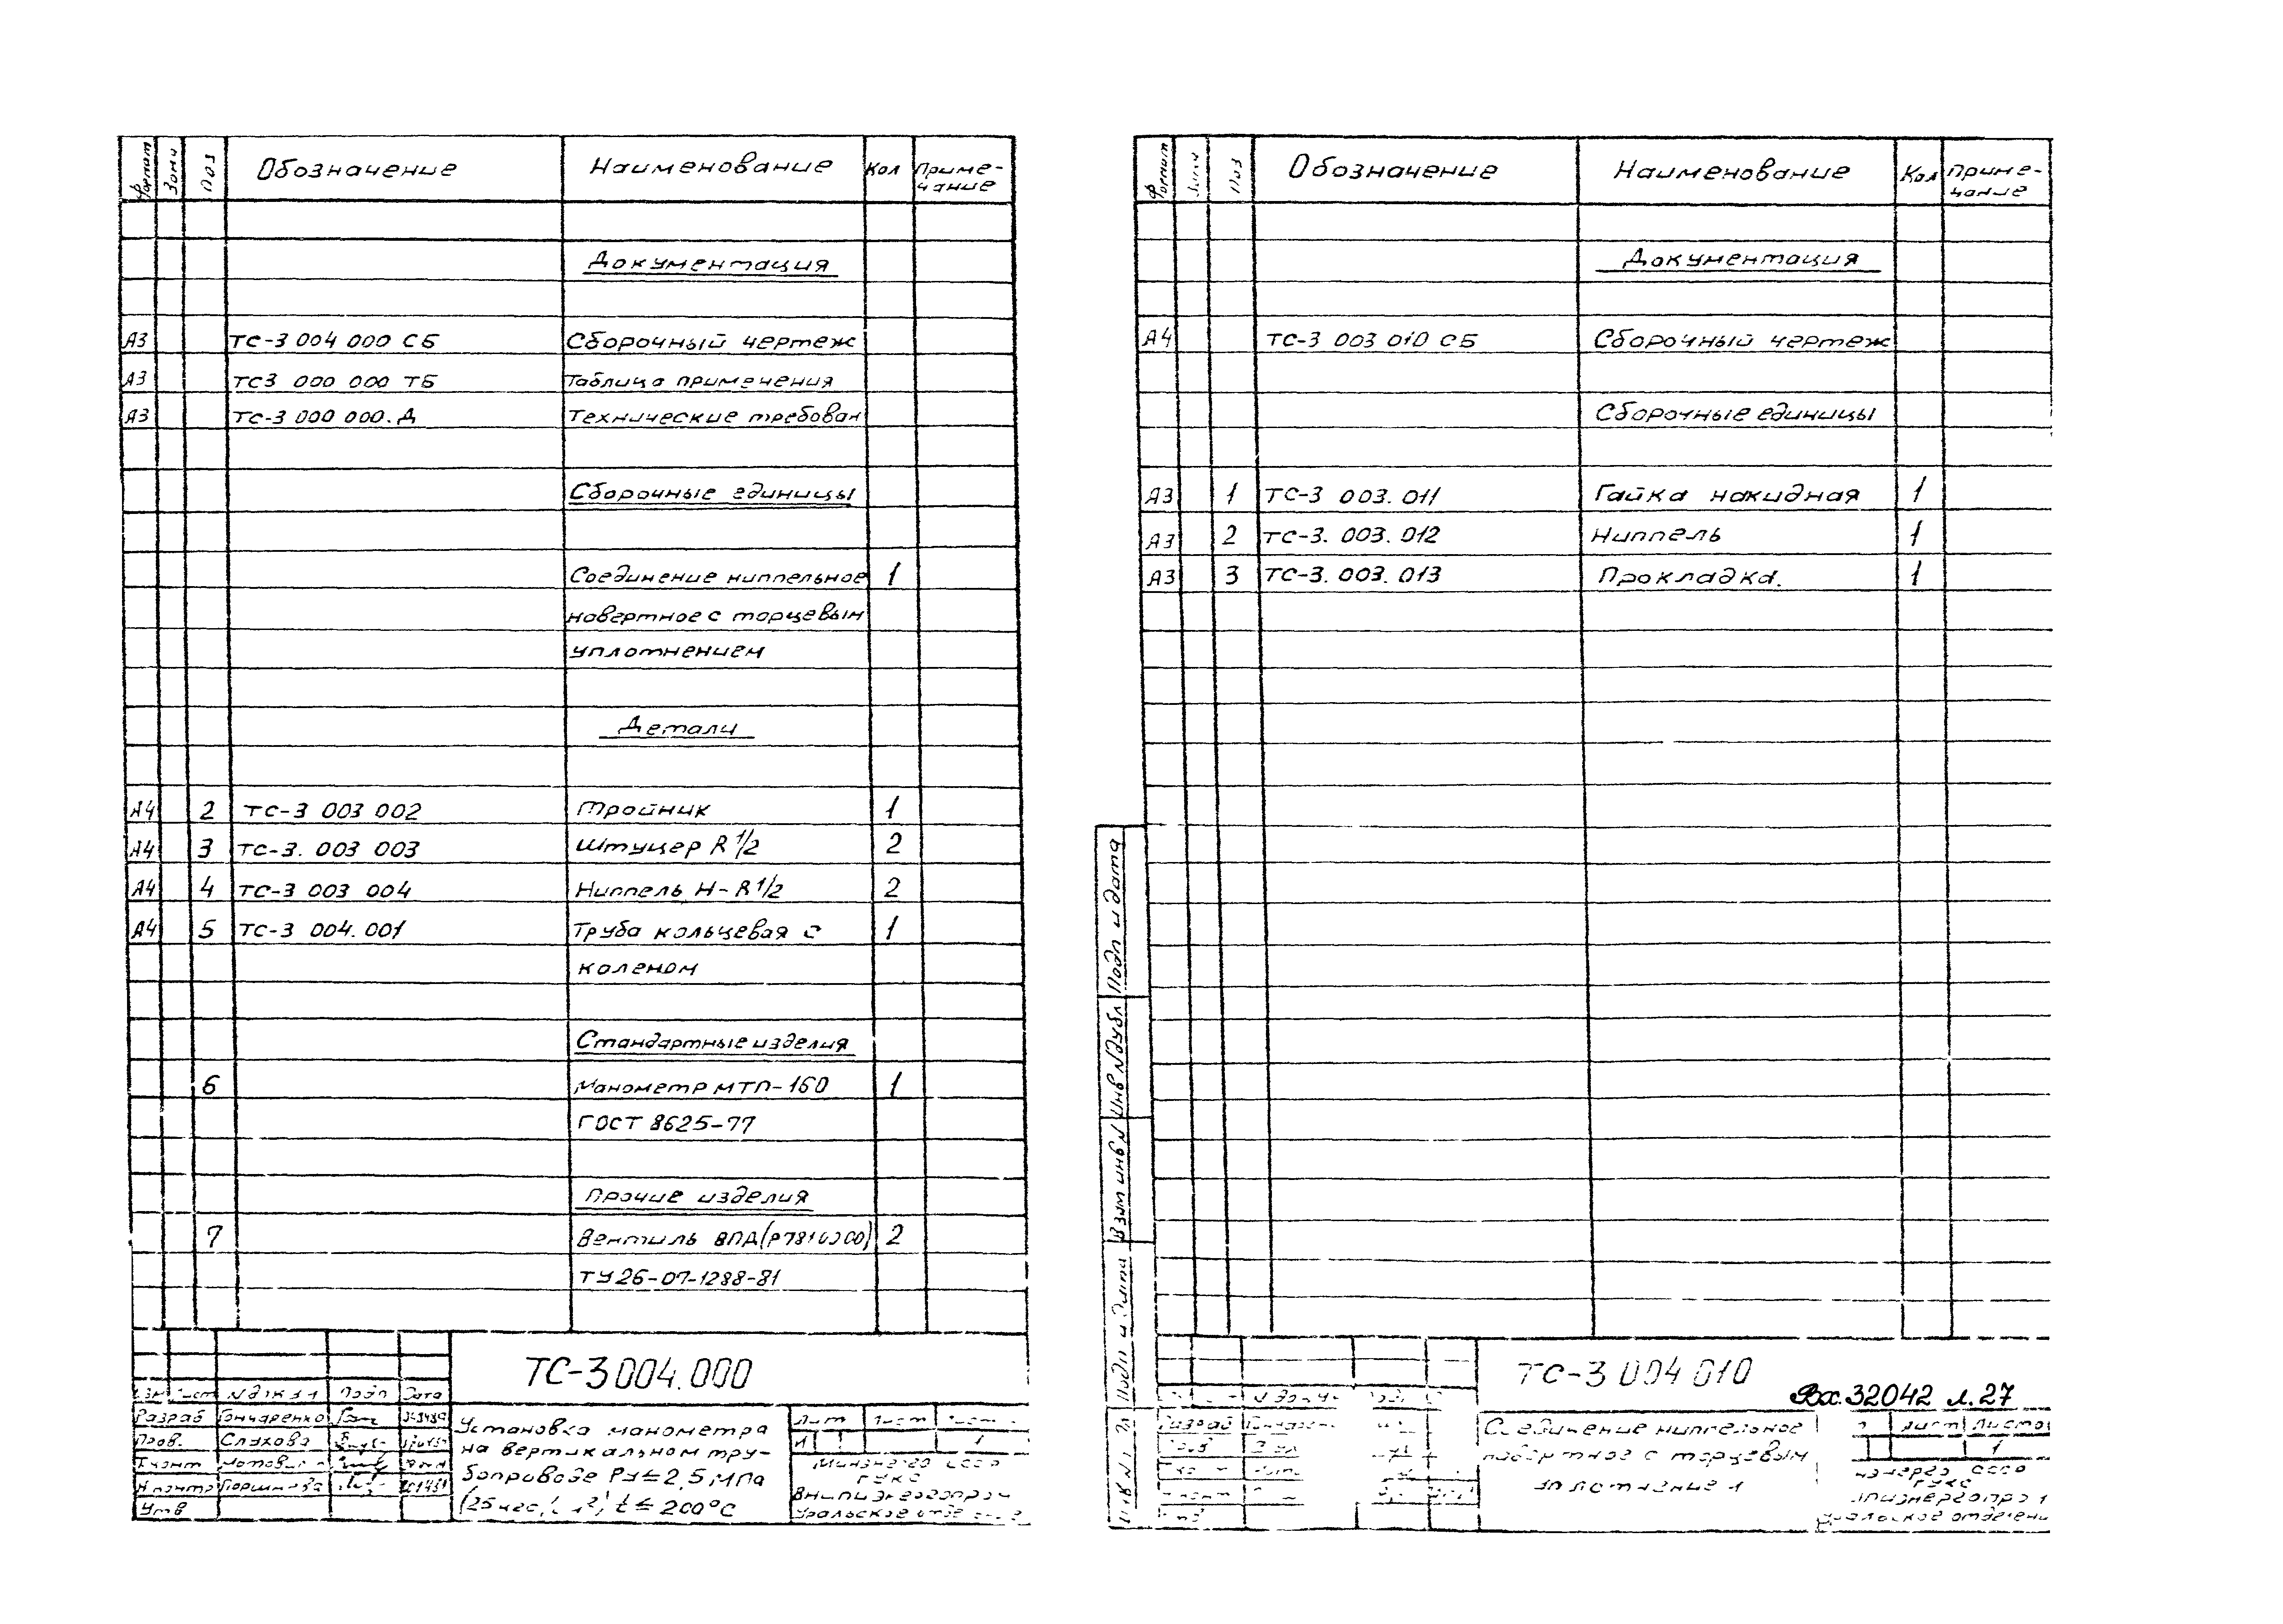 Формат Зона Поз Обозначение Наименование Кол Приме-
чание
Документация
А3 ТС-3 004 000 СБ Сборочный чертеж
А3 ТС3 000 000 ТБ Таблица применения
А3 ТС-3 000 000.Д Технические требован
Сборочные единицы
Соединение ниппельное 1
навертное с торцевым
уплотнением
Детали
А4 2 ТС-3 003 002 Тройник 1
А4 3 ТС-3. 003 003 Штуцер R 1/2 2
А4 4 ТС-3 003 004 Ниппель Н-R 1/2 2
А4 5 ТС-3 004.001 Труба кольцевая с 1
коленом
Стандартные изделия
6 Манометр МТП-160 1
ГОСТ 8625-77
Прочие изделия
7 Вентиль ВПД 2
ТУ 26-07-1288-81
ТС-3 004.000
Лист Подп Дата
Разраб Гончаренко
Пров. Слухова
Т.конт
Н контр
Утв
Установка манометра
на вертикальном тру-
бопроводе Ру≤2,5 МПа
t ≤ 200°С
Лит Лист
И 1
Минэнерго СССР
ГУКС
ВНИПИэнергопром
Уральское
Формат Поз Обозначение Наименование Кол Приме-
чание
Документация
А4 ТС-3 003 010 СБ Сборочный чертеж
Сборочные единицы
А3 1 ТС-3 003.011 Гайка накидная 1
А3 2 ТС-3. 003. 012 Ниппель 1
А3 3 ТС-3. 003. 013 Прокладка. 1
Подп и дата
Инв N дубл
Взам инв N
Подп и дата
ТС-3 004 010
Вх. 32042 л. 27
Разраб
Соединение ниппельное
навертное с торцевым
Лист Листов
1
СССР
ГУКС